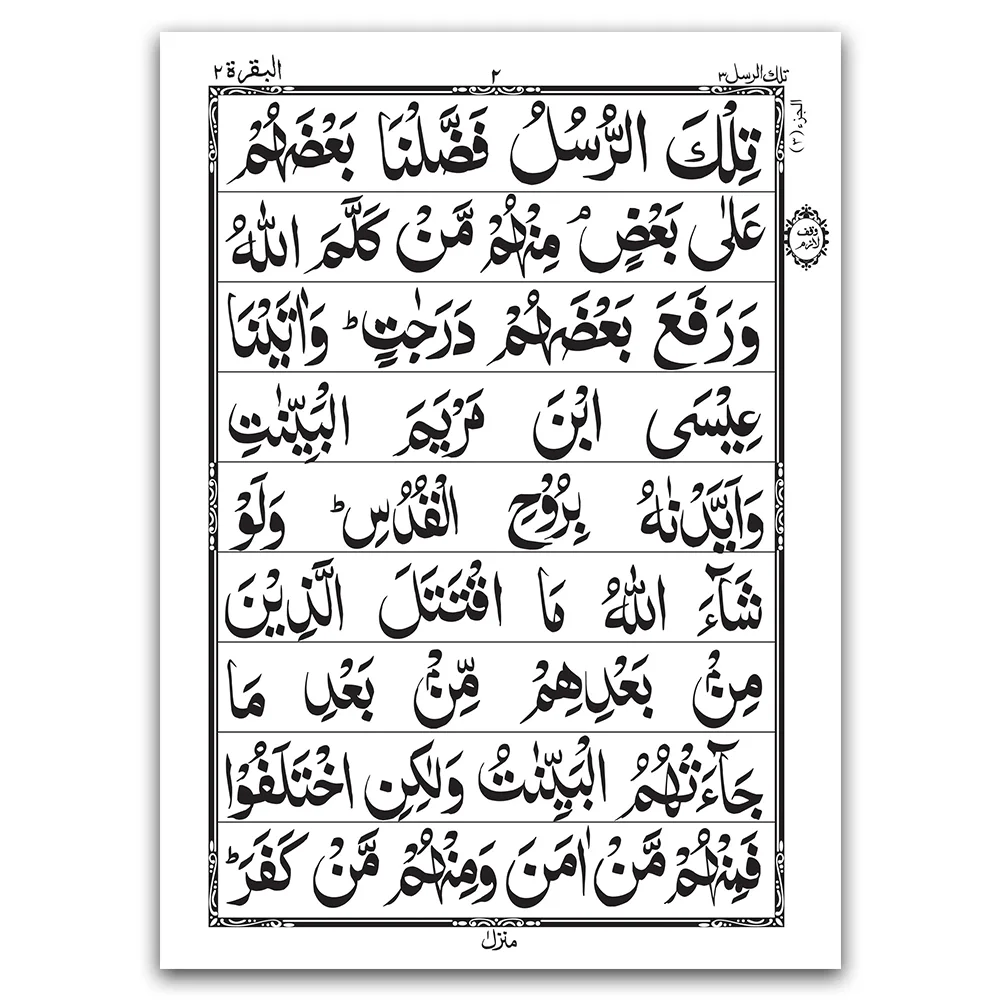 تلك الرسل ٣ ٢ البقرة ٢
الجزء (٣)
تِلْكَ الرُّسُلُ فَضَّلْنَا بَعْضَهُمْ
عَلٰى بَعْضٍ ۘ مِنْهُمْ مَّنْ كَلَّمَ اللّٰهُ
وقف لازم
وَرَفَعَ بَعْضَهُمْ دَرَجٰتٍ ؕ وَاٰتَيْنَا
عِيْسَى ابْنَ مَرْيَمَ الْبَيِّنٰتِ
وَاَيَّدْنٰهُ بِرُوْحِ الْقُدُسِ ؕ وَلَوْ
شَآءَ اللّٰهُ مَا اقْتَتَلَ الَّذِيْنَ
مِنْۢ بَعْدِهِمْ مِّنْۢ بَعْدِ مَا
جَآءَتْهُمُ الْبَيِّنٰتُ وَلٰكِنِ اخْتَلَفُوْا
فَمِنْهُمْ مَّنْ اٰمَنَ وَمِنْهُمْ مَّنْ كَفَرَ ؕ
منزل ١